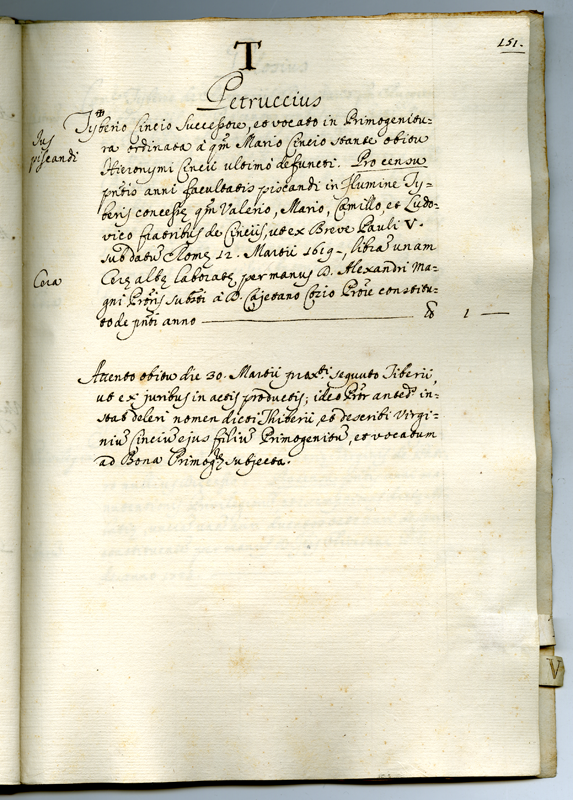 151.
T
Petruccius
Jus
piscandi
Tyberio Cincio Successore, et vocato in Primogenitu-
ra ordinata à qm̃ Mario Cincio stante obitu
Hieronymi Cincii ultimò defuncti. Pro censu
pñtis anni facultatis piscandi in flumine Ty-
beris concessę qm̃ Valerio, Mario, Camillo, et Ludo-
vico fratribus de Cinciis, ut ex Breve Pauli V.
sub datũ Romę 12. Martii 1619., libra unam
Cera
Cerę albę laboratę per manus D. Alexandri Ma-
gni Prõris substi à D. Cajetano Prõre constitu-
to de pñti anno 1
Attento obitu die 30. Martii proxi sequuto Tiberii,
ut ex juribus in actis productis; ideo Põr anteds in-
stat deleri nomen dicti Thiberii, et describi Virgi-
niũ Cinciũ ejus filiũ Primogenitũ, et vocatum
ad Bona Primogę subjecta.
V